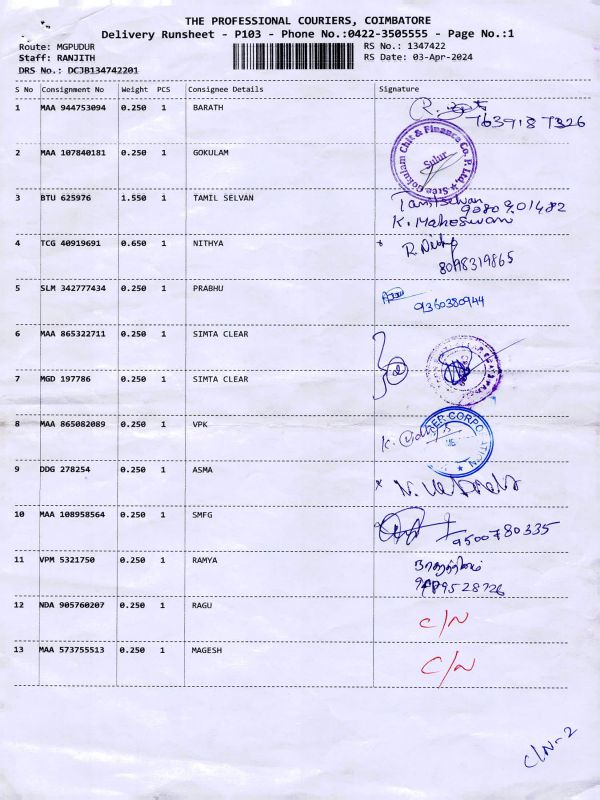 THE PROFESSIONAL COURIERS, COIMBATORE
Delivery Runsheet - P103 - Phone No.:0422-3505555 - Page No.:1
Route: MGPUDUR RS No.: 1347422
Staff: RANJITH RS Date: 03-Apr-2024
DRS No.: DCJB134742201
S No Consignment No Weight PCS Consignee Details Signature
1 MAA 944753094 0.250 1 BARATH
7639187326
2 MAA 107840181 0.250 1 GOKULAM Sree Gokulam Chit & Finance Co. P. Ltd., Sulur
3 BTU 625976 1.550 1 TAMIL SELVAN Tamilselvan
9080901482
K. Maheswari
4 TCG 40919691 0.650 1 NITHYA
8098319865
5 SLM 342777434 0.250 1 PRABHU
9360380944
6 MAA 865322711 0.250 1 SIMTA CLEAR
7 MGD 197786 0.250 1 SIMTA CLEAR 2
8 MAA 865082089 0.250 1 VPK K.
9 DDG 278254 0.250 1 ASMA N.
10 MAA 108958564 0.250 1 SMFG
9500780335
11 VPM 5321750 0.250 1 RAMYA
12 NDA 905760207 0.250 1 RAGU C/N
13 MAA 573755513 0.250 1 MAGESH C/N
C/N-2